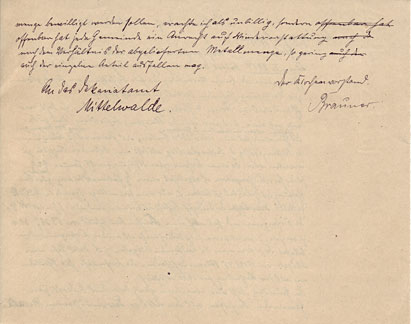 menge bewilligt werden sollen, erachte ich als unbillig, sondern offenbar hat
offenbar hat jede Gemeinde ein Anrecht auf Wiedererstattung
nach dem Verhältnis der abgelieferten Metallmenge, so gering auch der
auch der einzelne Anteil ausfallen mag.
An das Dekanatamt
Mittelwalde.
Der Kirchenvorstand.
Brauner